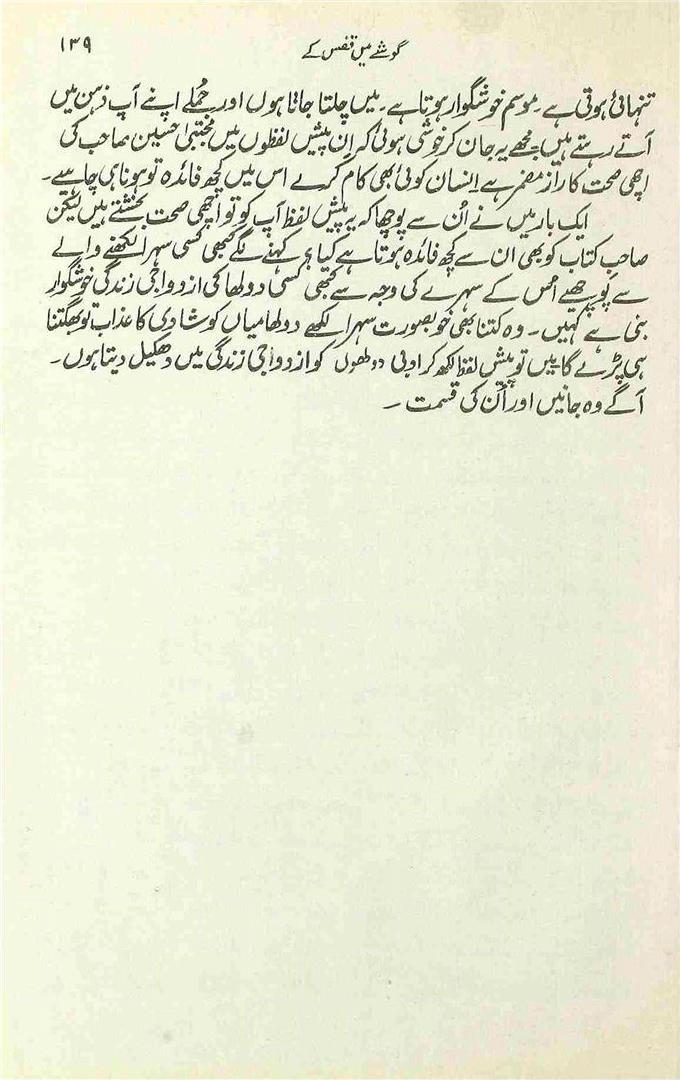 گوشے میں قفس کے ۱۳۹
تنہائی ہوتی ہے ۔ موسم خوشگوار ہوتا ہے ۔ میں چلتا جاتا ہوں اور جُملے اپنے آپ ذہن میں
آتے رہتے ہیں۔ مجھے یہ جان کر خوشی ہوئی کہ اِن پیش لفظوں میں مجتبیٰ حسین صاحب کی
اچھی صحت کا راز مضمر ہے۔ انسان کوئی بھی کام کرے اس میں کچھ فائدہ تو ہونا ہی چاہیے۔
ایک بار میں نے اُن سے پوچھا کہ یہ پیش لفظ آپ کو تو اچھی صحت بخشتے ہیں لیکن
صاحبِ کتاب کو بھی ان سے کچھ فائدہ ہوتا ہے کیا؟ کہنے لگے کبھی کسی سہرا لکھنے والے
سے پوچھیے اُس کے سہرے کی وجہ سے کبھی کسی دولھا کی ازدواجی زندگی خوشگوار
بنی ہے کہیں ۔ وہ کتنا بھی خوبصورت سہرا لکھے دولھا میاں کو شادی کا عذاب تو بھگتنا
ہی پڑے گا میں تو پیش لفظ لکھ کر ادبی دولھوں کو ازدواجی زندگی میں دھکیل دیتا ہوں۔
آگے وہ جانیں اور اُن کی قسمت ۔